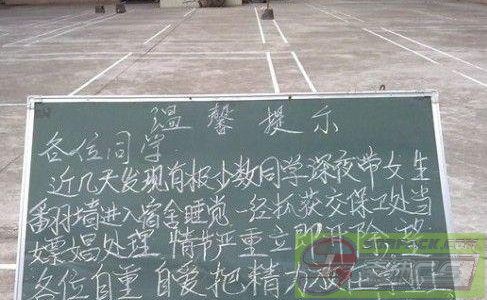 温馨提示
各位同学
近几天发现有极少数同学深夜带女生
翻墙进入宿舍睡觉 一经抓获交保卫处当
嫖娼处理 情节严重立即开除
各位自重 自爱把精力放在学